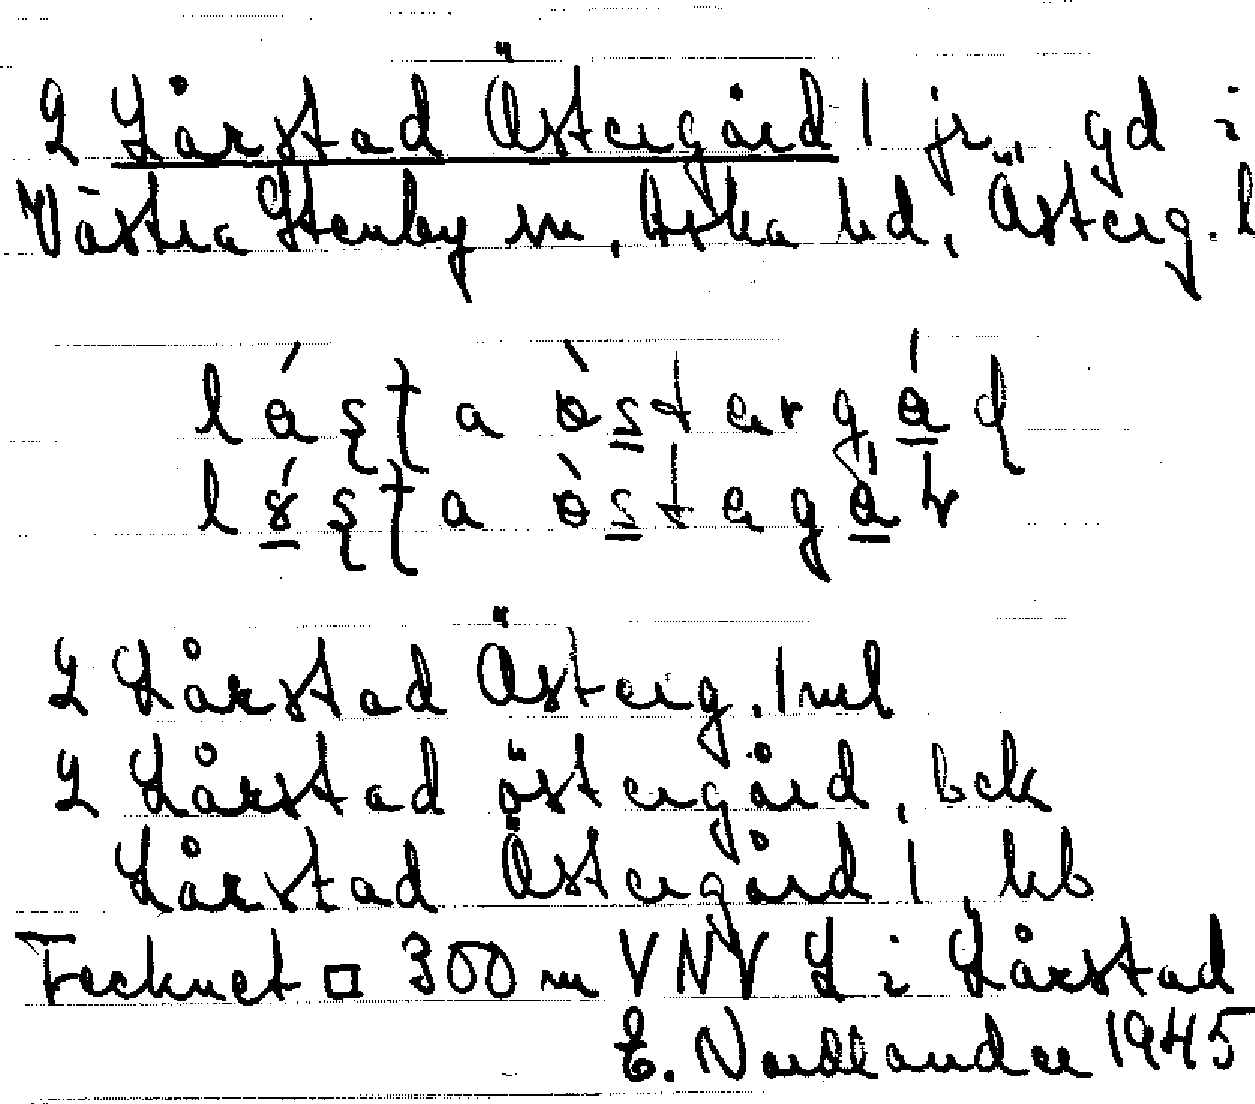 2 Lårstad Östergård 1 jr, gd i
Västra Stenby sn, Aska hd, Österg. l
lás̨ta östergård
lás̨ta östegår
2 Lårstad Österg. 1 ml
2 Lårstad östergård, bek
Lårstad Östergård 1, hb
Tecknet □ 300 m VNV L i Lårstad
E. Nordlander 1945